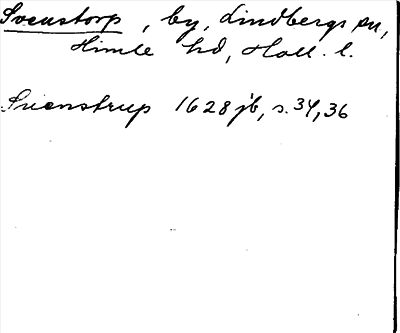 Svenstorp, by, Lindbergs sn,
Himle hd, Hall. l.
Svenstrup 1628 jb, s. 34, 36